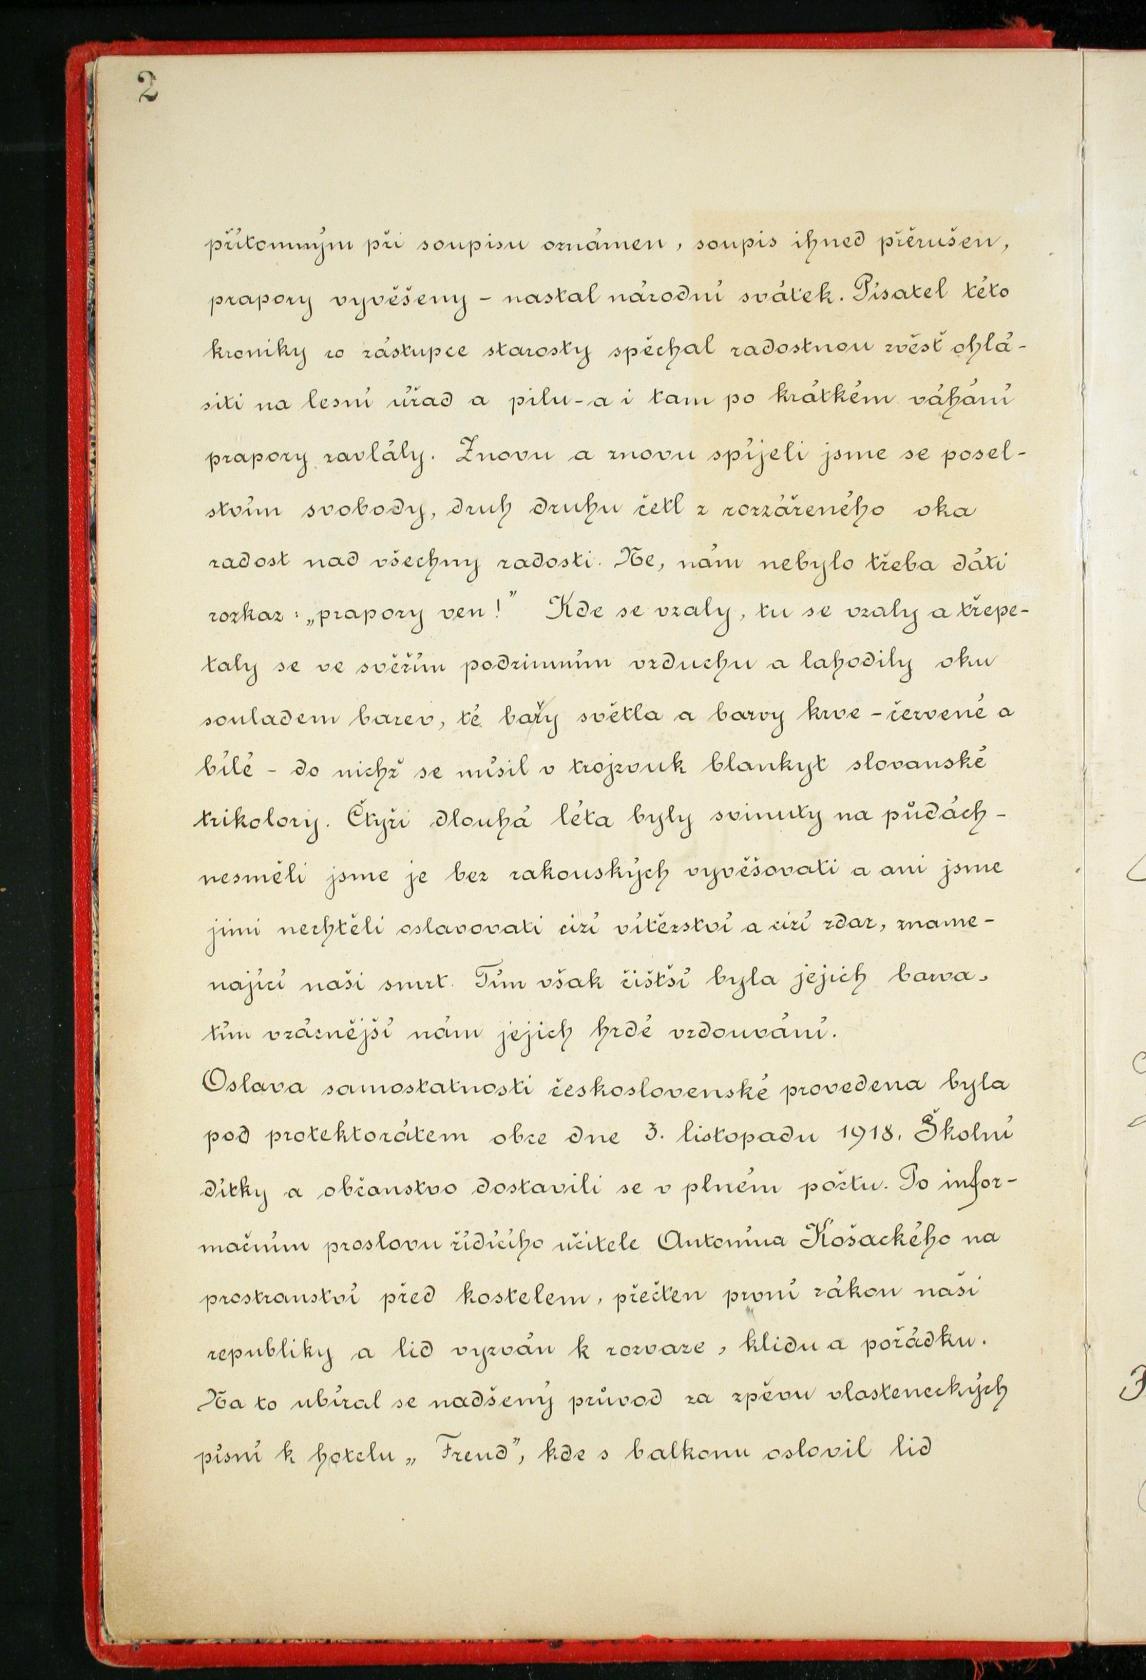 2
přítomným při soupisu oznámen, soupis ihned přěrušen,
prapory vyvěšeny - nastal národní svátek. Písatel této
kroniky co zástupce starosty spěchal radostnou zvěsť ohlá-
siti na lesní úřad a pilu - a i tam po krátkém váhání
prapory zavlály. Znovu a znovu spíjeli jsme se posel-
stvím svobody, druh druhu četl z rozzářeného oka
radost nad všechny radosti. Ne, nám nebylo třeba dáti
rozkaz: „prapory ven!" Kde se vzaly, tu se vzaly a třepe-
taly se ve svěřím podzimním vzduchu a lahodily oku
souladem barev, té bařy světla a barvy krve - červené a
bílé - do nichž se mísil v trojzvuk blankyt slovanské
trikolory. Čtyři dlouhá léta byly svinuty na půdách -
nesměli jsme je bez rakouských vyvěšovati a ani jsme
jimi nechtěli oslavovati cizí vítězství a cizí zdar, zname-
nající naši smrt. Tím však čistší byla jejich barva,
tím vzácnější nám jejich hrdé vzdouvání.
Oslava samostatnosti československé provedena byla
pod protektorátem obce dne 3. listopadu 1918. Školní
dítky a občanstvo dostavili se v plném počtu. Po infor-
mačním proslovu řídícího učitele Antonína Košackého na
prostranství před kostelem, přečten první zákon naší
republiky a lid vyzván k rozvaze, klidu a pořádku.
Na to ubíral se nadšený průvod za zpěvu vlasteneckých
písní k hotelu „Freud", kde s balkonu oslovil lid